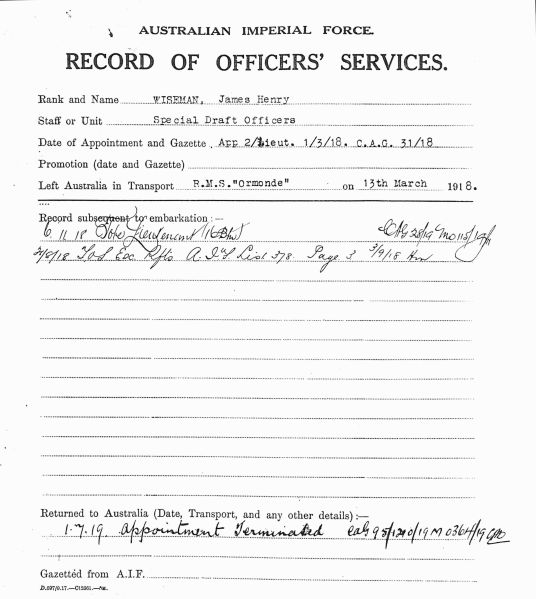 AUSTRALIAN IMPERIAL FORCE.
RECORD OF OFFICERS' SERVICES.
Rank and Name WISEMAN, James Henry
Staff or Unit Special Draft Officers
Date of Appointment and Gazette App 2/Lieut. 1/3/18. C.A.G. 31/18
Promotion (date and Gazette)
Left Australia in Transport R.M.S."Ormonde" on 13th March 1918.
Record subsequent to embarkation:—
6 11 18 To be Lieutenant CAG 28/19
2/9/18 A.I.F List 378 Page 3 3/9/18
Returned to Australia (Date, Transport, and any other details):—
1.7.19 Appointment Terminated CAG
Gazetted from A.I.F.
D.697/9.17.—C12961.—